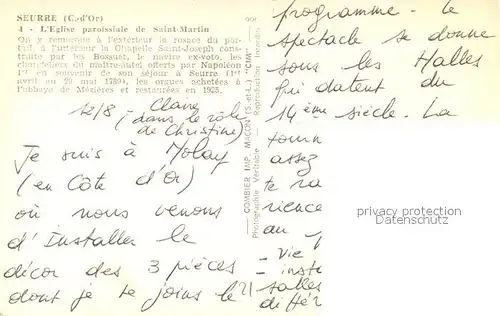 SEURRE (C.-d'Or)
4 - L'Eglise paroissiale de Saint-Martin
On y remarque à l'extérieur la rosace du por-
tail, à l'intérieur la Chapelle Saint-Joseph cons-
truite par les Bossuet, le navire ex-voto, les
chandeliers du maître-autel offerts par Napoléon
1er en souvenir de son séjour à Seurre (1er
avril au 29 mai 1789), les orgues achetées à
l'abbaye de Mézières et restaurées en 1925.
12/8 - Claire
(dans le rôle
de Christine)
Je suis à Molay
(en Côte d'or)
où nous venons
d'installer le
décor des 3 pièces
dont je te joins le
COMBIER IMP. MACON (S.-et-L.) "CIM"
Photographie Véritable - Reproduction Interdite
21
programme. Le
spectacle se donne
sous les Halles
qui datent du
14ème siècle. La
tourn
assez
te ra
rience
au
- vie
- insta
salles
différ
privacy protection
Datenschutz